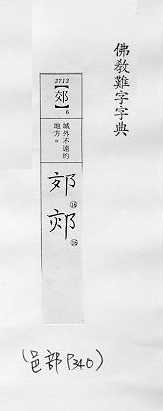 佛教難字字典
2712
【郊】6
城外不遠的
地方。
郊
郊
(邑部P340)